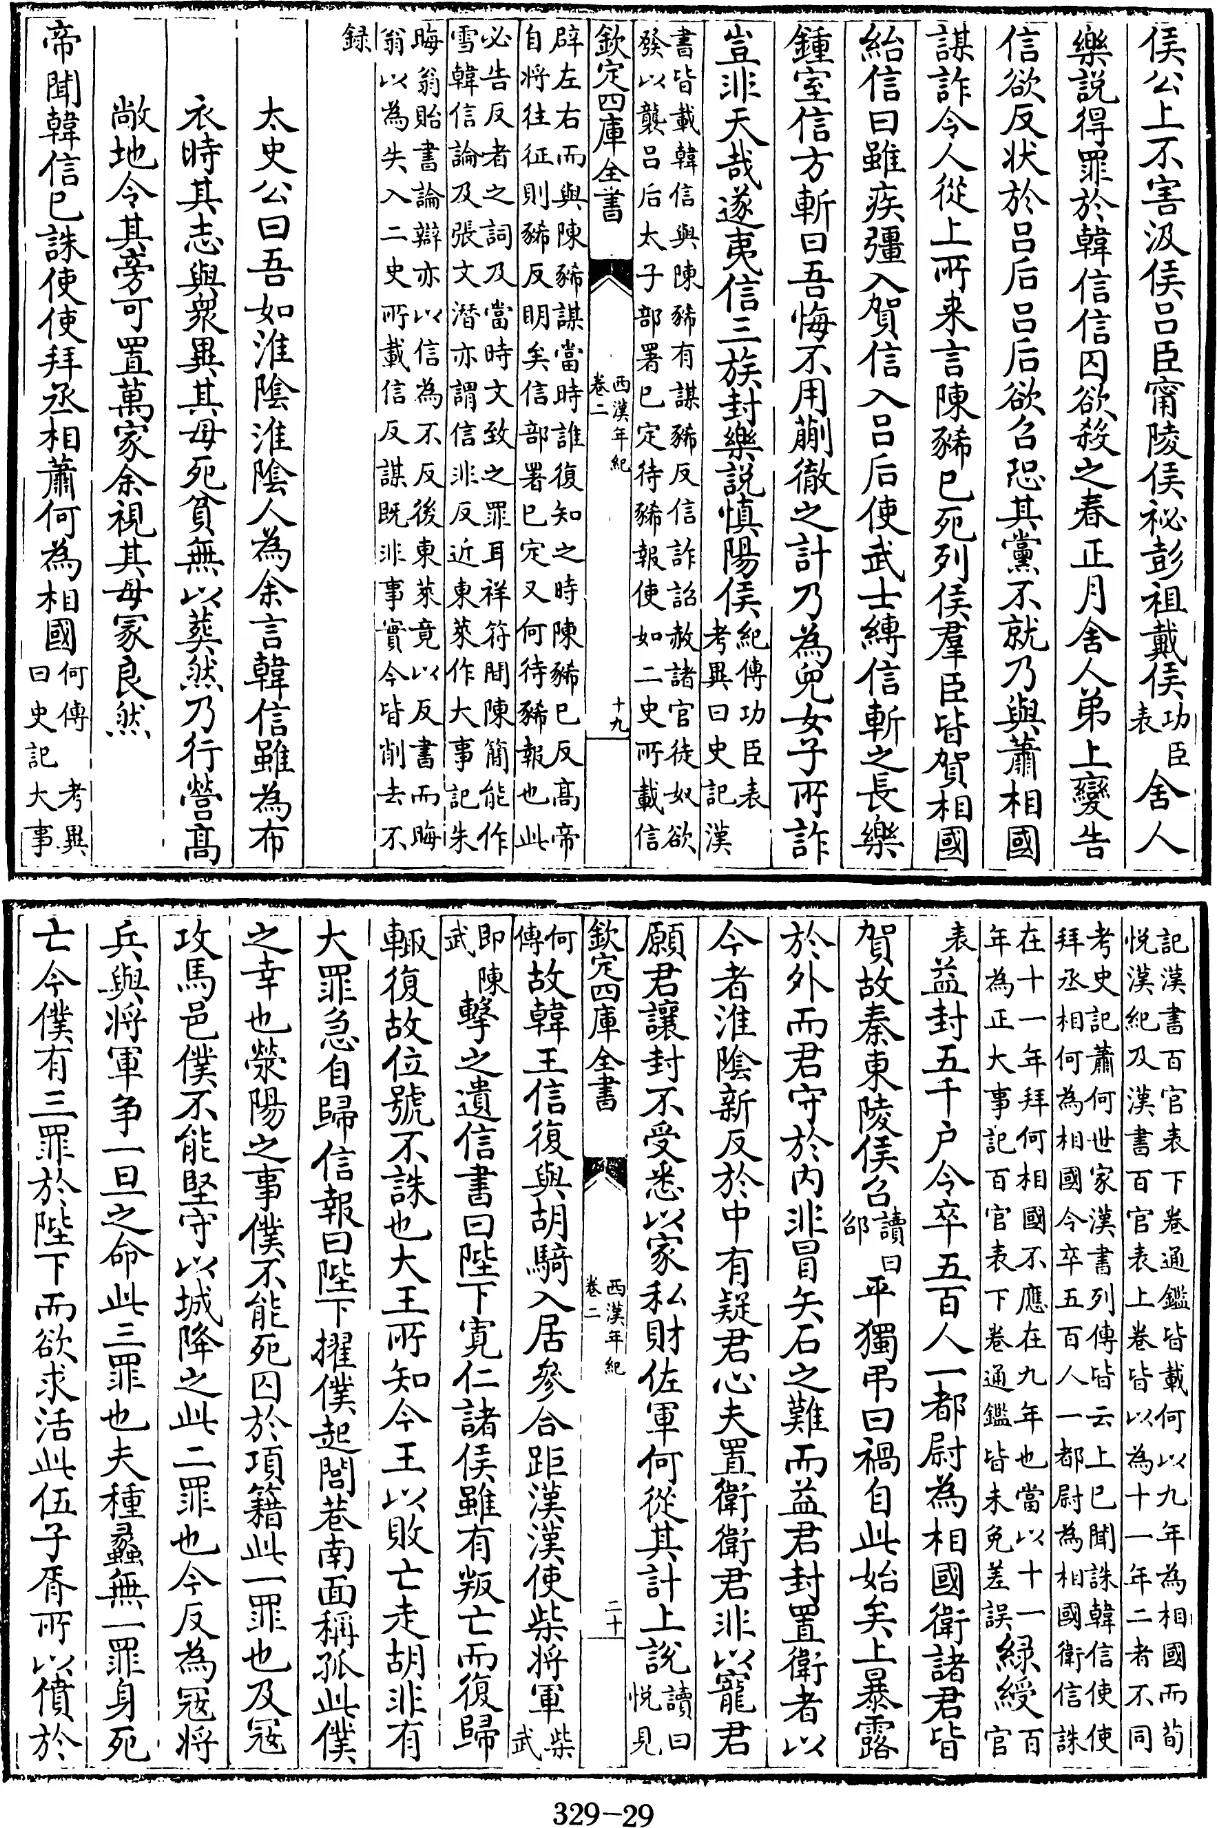 侯公上不害汲侯吕臣甯陵侯祕彭祖戴侯功臣表舍人
樂說得罪於韓信信囚欲殺之春正月舍人弟上變告
信欲反狀於吕后吕后欲召恐其黨不就乃與蕭相國
謀詐令人從上所来言陳豨已死列侯羣臣皆賀相國
紿信曰雖疾彊入賀信入吕后使武士縛信斬之長樂
鍾室信方斬曰吾悔不用蒯徹之計乃為兒女子所詐
豈非天哉遂夷信三族封樂說慎陽侯紀傳功臣表考異曰史記漢
書皆載韓信與陳豨有謀豨反信詐詔赦諸官徒奴欲
發以襲吕后太子部署已定待豨報使如二史所載信
欽定四庫全書
西漢年紀
卷二
十九
辟左右而與陳豨謀當時誰復知之時陳豨已反髙帝
自將往征則豨反明矣信部署已定又何待豨報也此
必告反者之詞及當時文致之罪耳祥符間陳簡能作
雪韓信論及張文潜亦謂信非反近東萊作大事記朱
晦翁貽書論辯亦以信為不反後東萊竟以反書而晦
翁以為失入二史所載信反謀既非事實今皆削去不
録
太史公曰吾如淮隂淮隂人為余言韓信雖為布
衣時其志與衆異其母死貧無以葬然乃行營髙
敞地令其旁可置萬家余視其母冢良然
帝聞韓信已誅使使拜丞相蕭何為相國何傳考異曰史記大事
記漢書百官表下卷通鑑皆載何以九年為相國而荀
悦漢紀及漢書百官表上卷皆以為十一年二者不同
考史記蕭何世家漢書列傳皆云上已聞誅韓信使使
拜丞相何為相國令卒五百人一都尉為相國衛信誅
在十一年拜何相國不應在九年也當以十一
年為正大事記百官表下卷通鑑皆未免差誤緑綬百官
表益封五千户令卒五百人一都尉為相國衛諸君皆
賀故秦東陵侯召讀曰邵平獨弔曰禍自此始矣上暴露
於外而君守於内非冒矢石之難而益君封置衛者以
今者淮隂新反於中有疑君心夫置衛衛君非以寵君
願君讓封不受悉以家私財佐軍何從其計上說讀曰悦見
欽定四庫全書
西漢年紀
卷二
二十
何傳故韓王信復與胡騎入居參合距漢漢使柴將軍柴武
即陳武擊之遺信書曰陛下寛仁諸侯雖有叛亡而復歸
輙復故位號不誅也大王所知今王以敗亡走胡非有
大罪急自歸信報曰陛下擢僕起閭巷南面稱孤此僕
之幸也滎陽之事僕不能死囚於項籍此一罪也及冦
攻馬邑僕不能堅守以城降之此二罪也今反為冦將
兵與將軍争一旦之命此三罪也夫種蠡無一罪身死
亡今僕有三罪於陛下而欲求活此伍子胥所以僨於
329-29